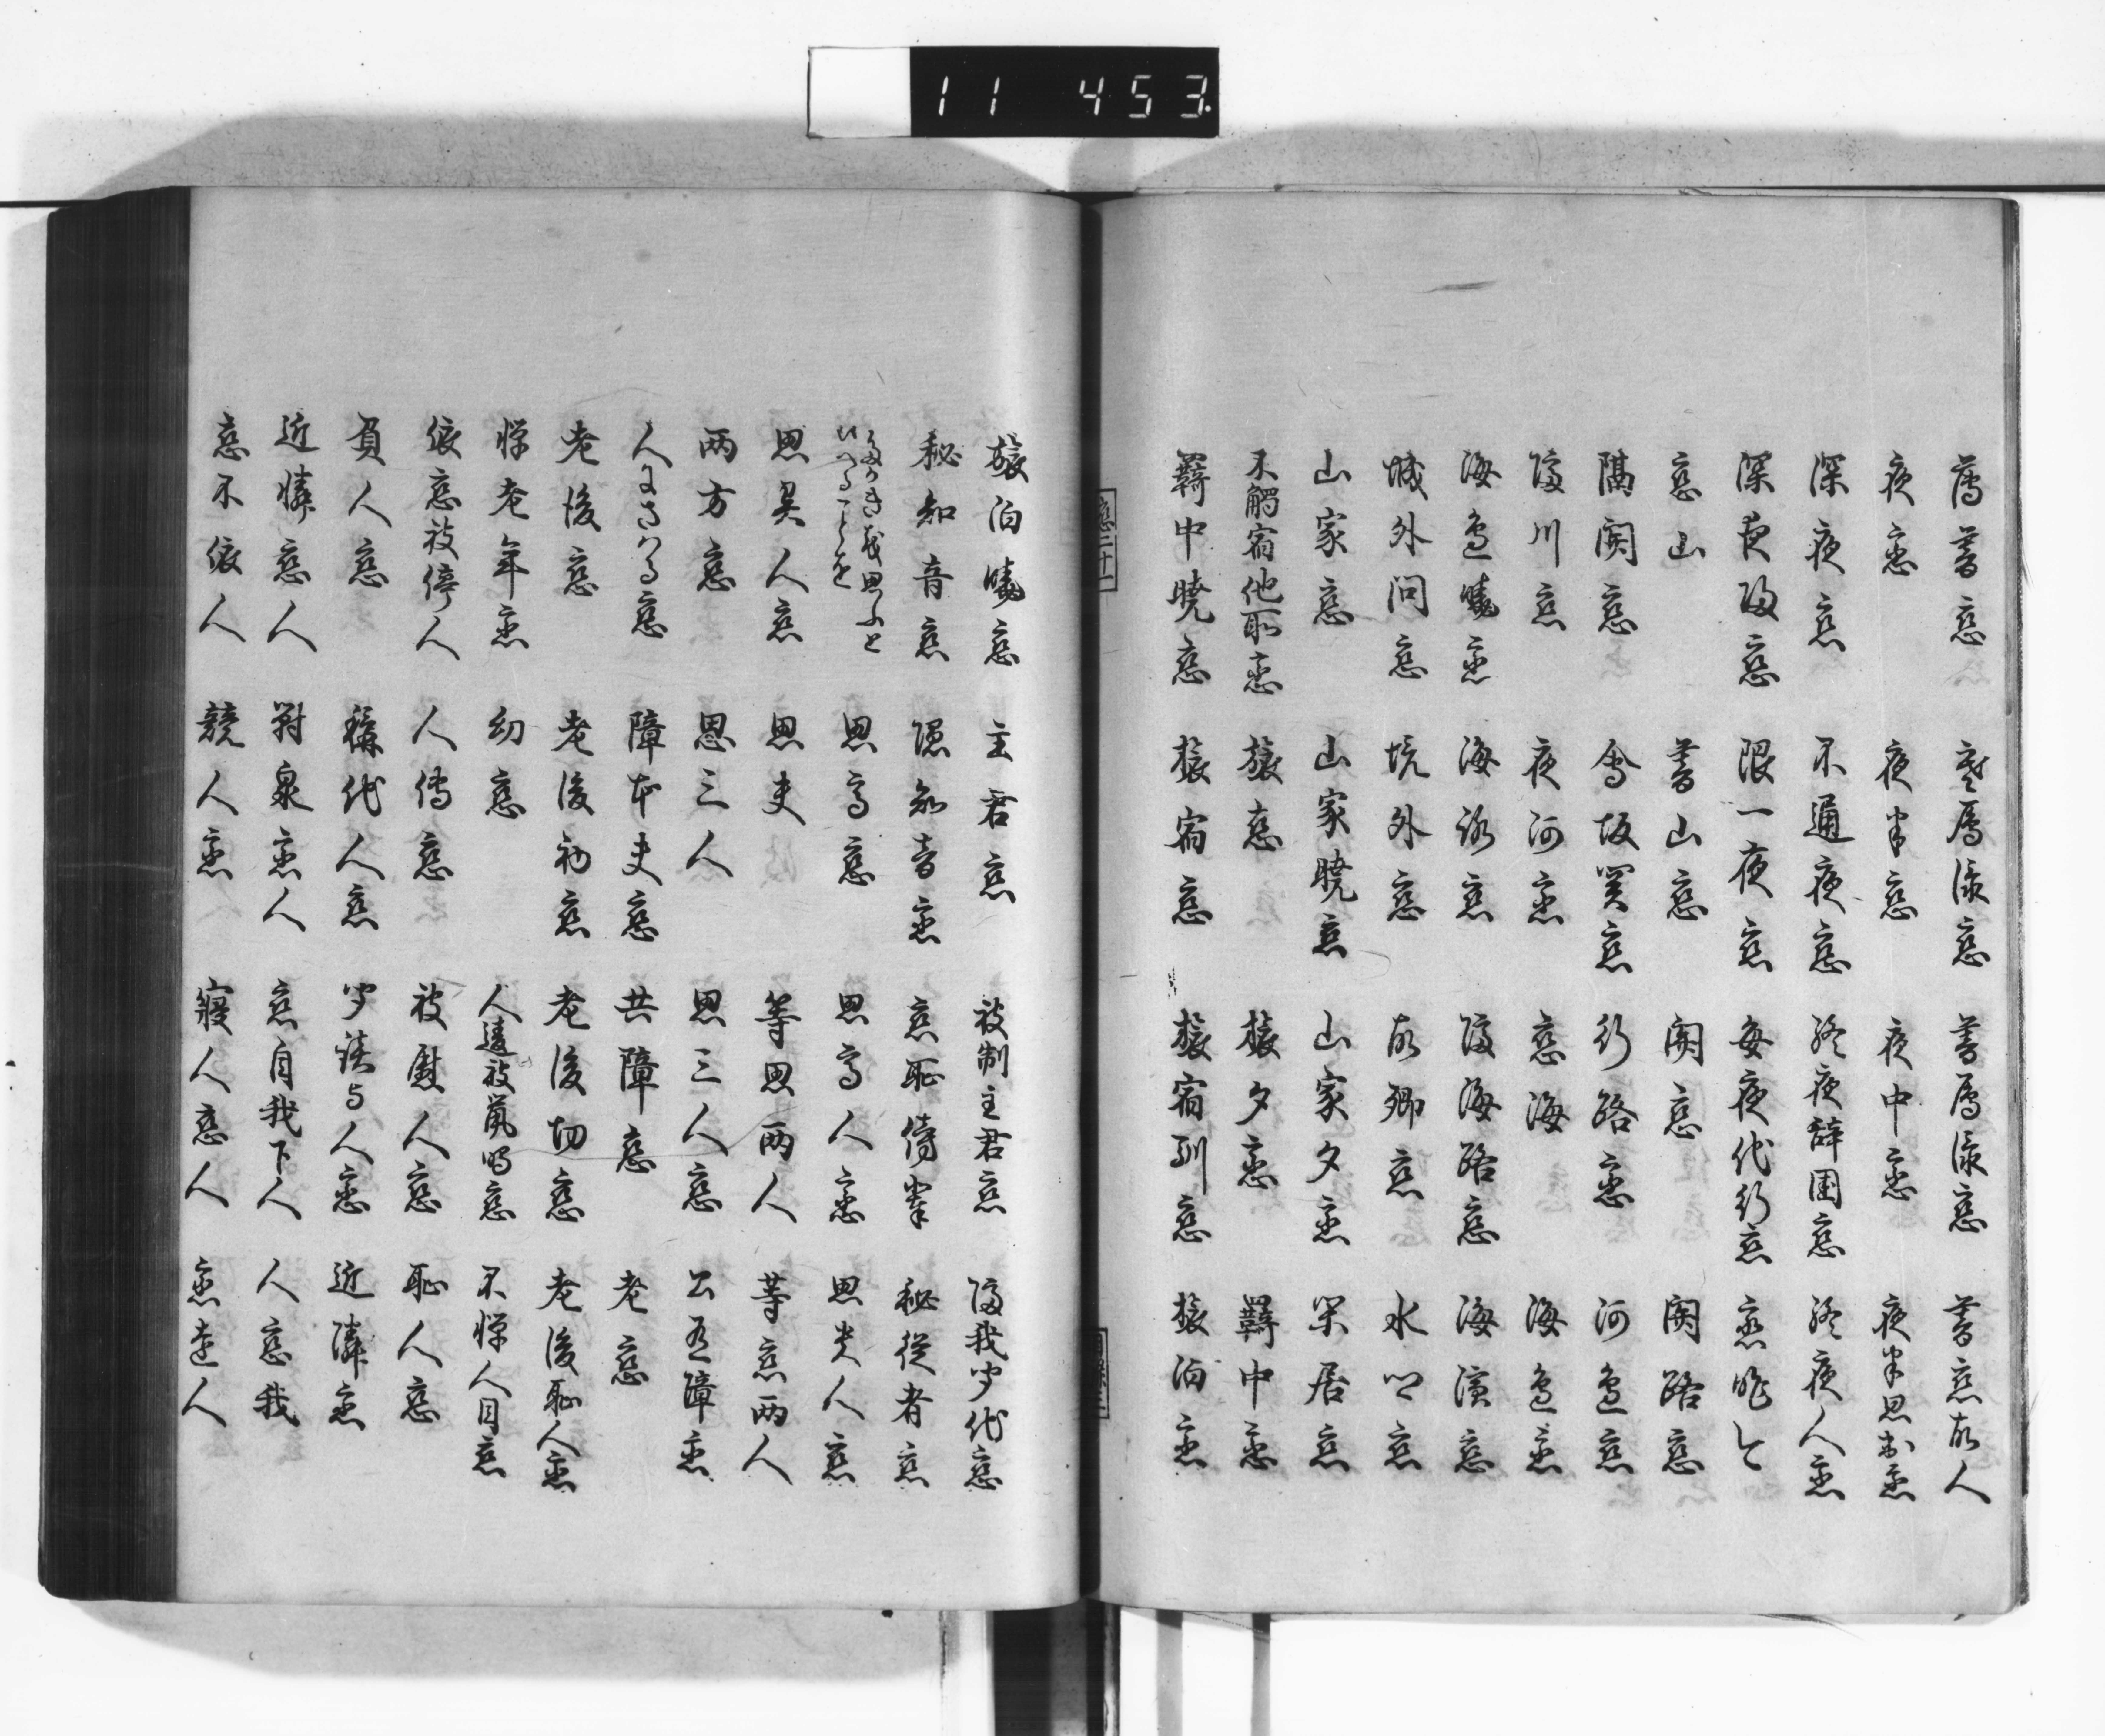 11 453.
薄暮恋 寄属緑恋 暮属緑恋 暮恋故人
夜恋 夜半恋 夜中恋 夜半思出恋
深夜恋 不通夜恋 終夜辞国恋 終夜人恋
深夜帰恋 限一夜恋 毎夜代行恋 恋昨今
恋山 暮山恋 関恋 関路恋
隔関恋 会坂関恋 行路恋 河辺恋
隔川恋 夜河恋 恋海 海辺恋
海辺暁恋 海路恋 隔海路恋 海浜恋
城外問恋 境外恋 故郷恋 水郷恋
山家恋 山家暁恋 山家夕恋 閑居恋
不觸宿他所恋 旅恋 旅夕恋 羇中恋
羇中暁恋 旅宿恋 旅宿馴恋 旅泊恋
恋二十一
旅泊暁恋 主君恋 被制主君恋 隔我聞他恋
秘知音恋 隠知音恋 恋恥傍輩 秘従者恋
思高恋 思高人恋 思貴人恋
思異人恋 思妻 等思両人 等恋両人
両方恋 思三人 思三人恋 公私障恋
人にさはる恋 障本妻恋 共障恋 老恋
老後恋 老後初恋 老後切恋 老後恥人恋
惮老年恋 幼恋 不惮人目恋
依恋被停人 人傳恋 被慰人恋 恥人恋
負人恋 稱他人恋 聞語与人恋 近隣恋
近隣恋人 對泉恋人 恋自我下人 人恋我
恋不依人 競人恋 寝人恋人 恋遠人